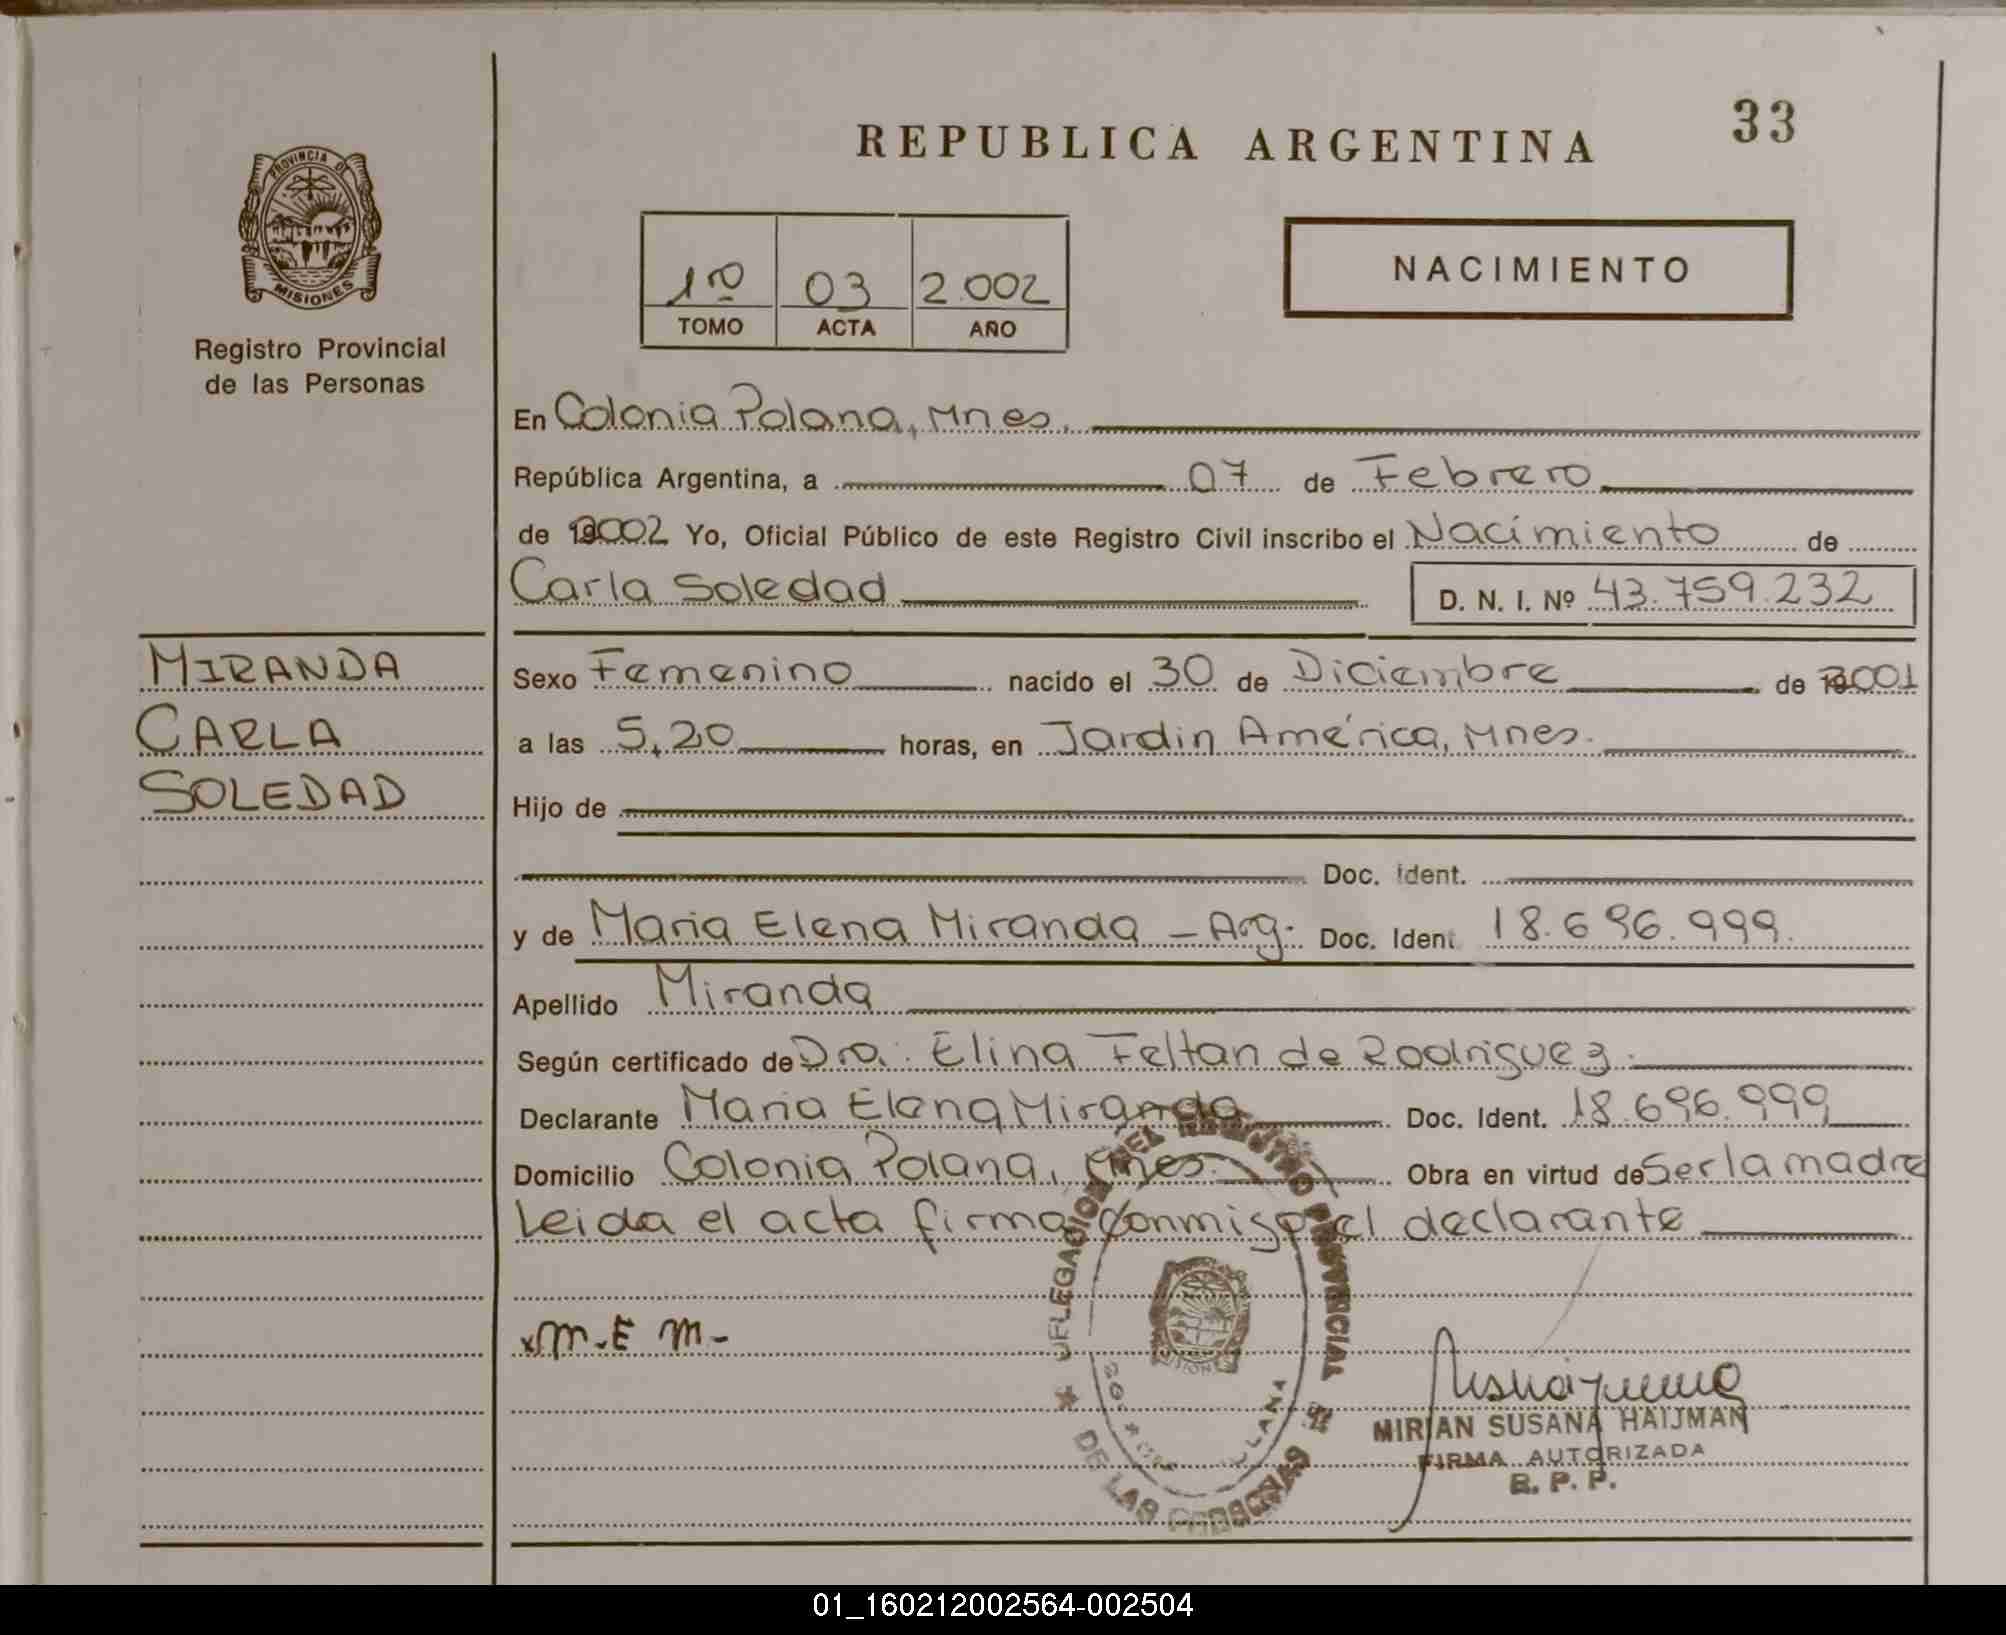 33
REPUBLICA ARGENTINA
PROVINCIA DE
MISIONES
Registro Provincial
de las Personas
NACIMIENTO
1ro 03 2.002
TOMO ACTA AÑO
En Colonia Polana, Mnes.
República Argentina, a 07 de Febrero
de 2002 Yo, Oficial Público de este Registro Civil inscribo el Nacimiento de
Carla Soledad D. N. I. Nº 43.759.232
MIRANDA
CARLA
SOLEDAD
Sexo Femenino nacido el 30 de Diciembre de 2001
a las 5,20 horas, en Jardin América, Mnes.
Hijo de
Doc. Ident.
y de Maria Elena Miranda - Arg. Doc. Ident 18.696.999.
Apellido Miranda
Según certificado de Dra. Elina Feltan de Rodriguez.
Declarante Maria Elena Miranda Doc. Ident. 18.696.999
Domicilio Colonia Polana, Mnes. Obra en virtud de Ser la madre
Leida el acta firma conmigo el declarante
x m.E m-
DELEGACION DEL REGISTRO PROVINCIAL
DE LAS PERSONAS
MISIONES
MIRIAN SUSANA HAIJMAN
FIRMA AUTORIZADA
R. P. P.
01_160212002564-002504